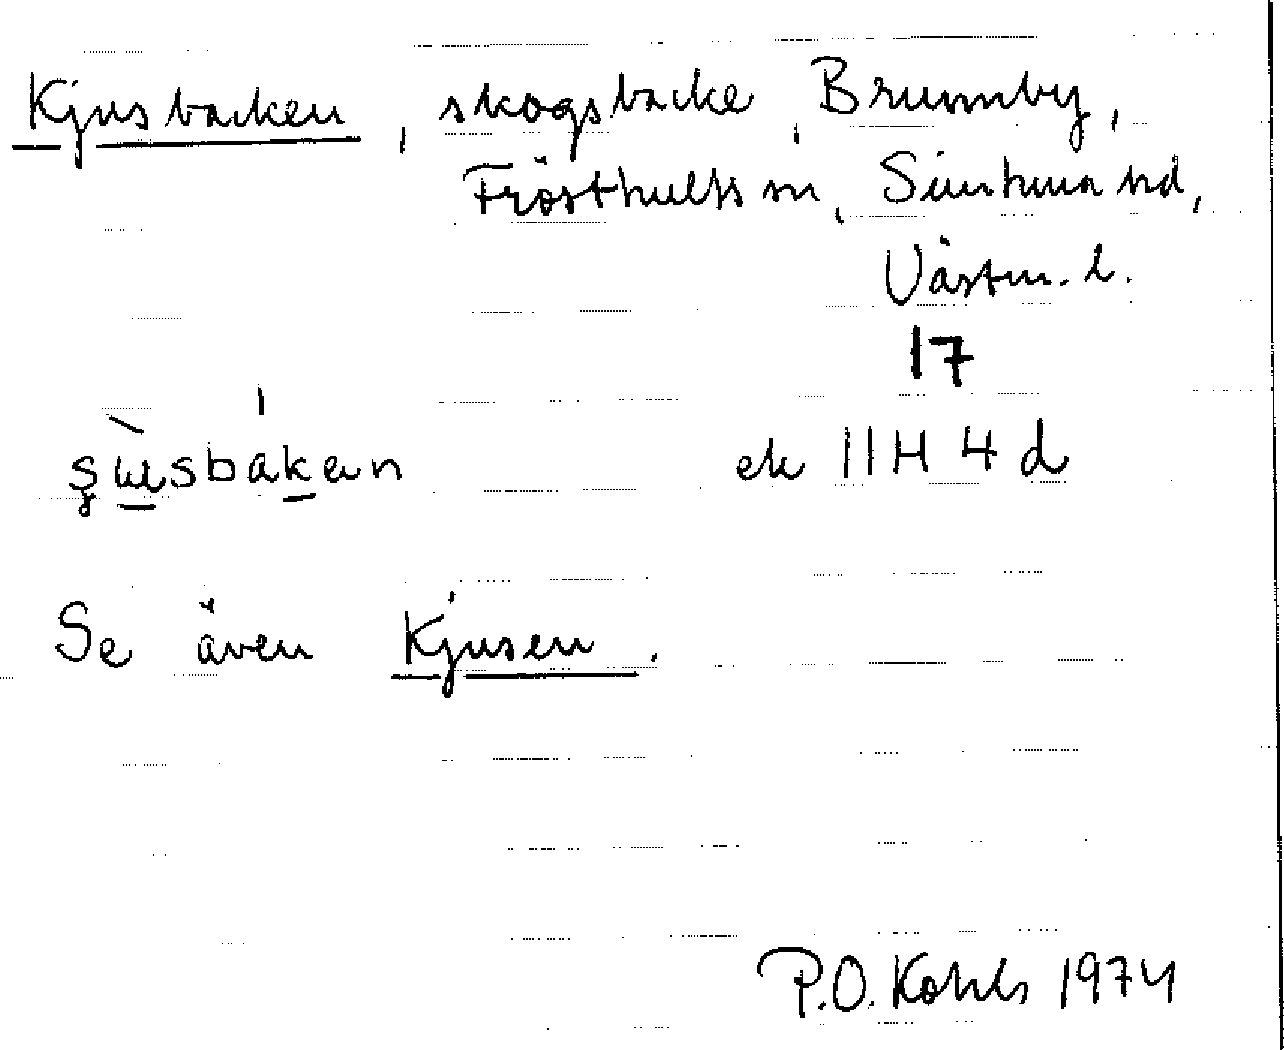 Kjusbacken, skogsbacke, Brunnby,
Frösthults sn, Simtuna hd,
Västm. l.
17
ek 11H 4d
Se även Kjusen.
P.O. Kohls 1974